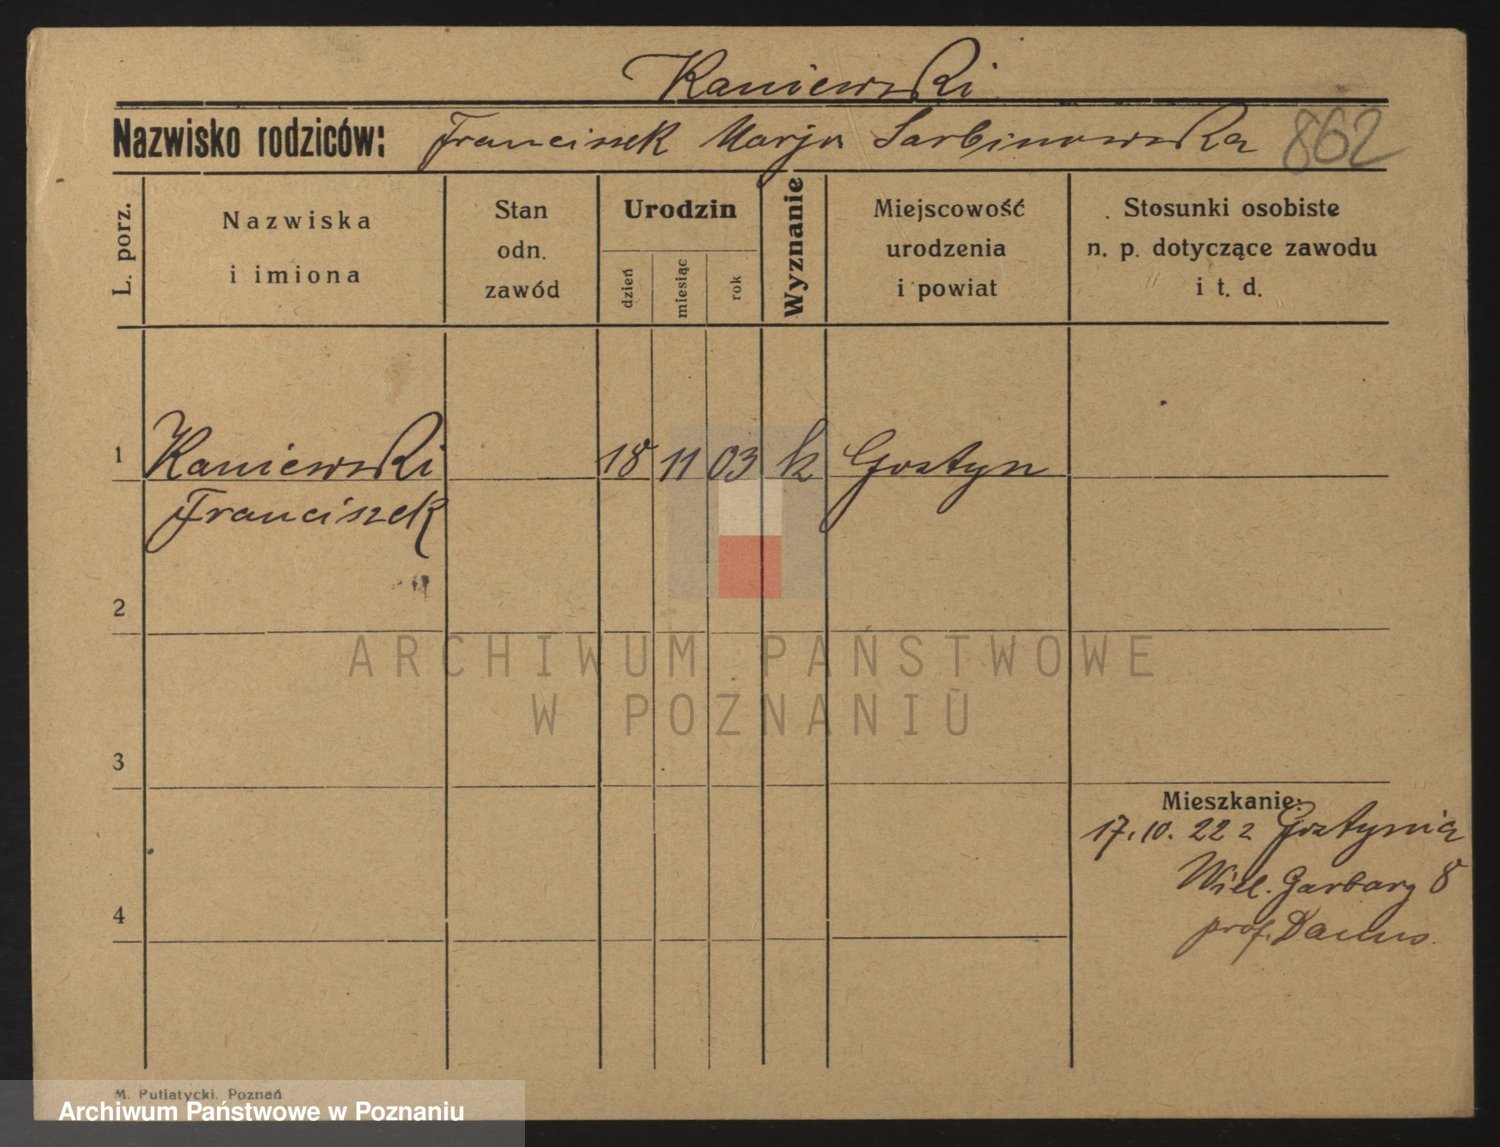 Kaniewski
Nazwisko rodziców: Franciszek Marja Sarbinowska 862
L. porz.
Nazwiska
i imiona
Stan
odn.
zawód
Urodzin
dzień
miesiąc
rok
Wyznanie
Miejscowość
urodzenia
i powiat
Stosunki osobiste
n. p. dotyczące zawodu
i t. d.
1 Kaniewski 18 11 03 k Gostyn
Franciszek
2
ARCHIWUM PAŃSTWOWE
W POZNANIU
3
Mieszkanie:
17.10.22 z Gostynia
Wiel. Garbary 8
prof.
4
M. Putiatycki. Poznań
Archiwum Państwowe w Poznaniu